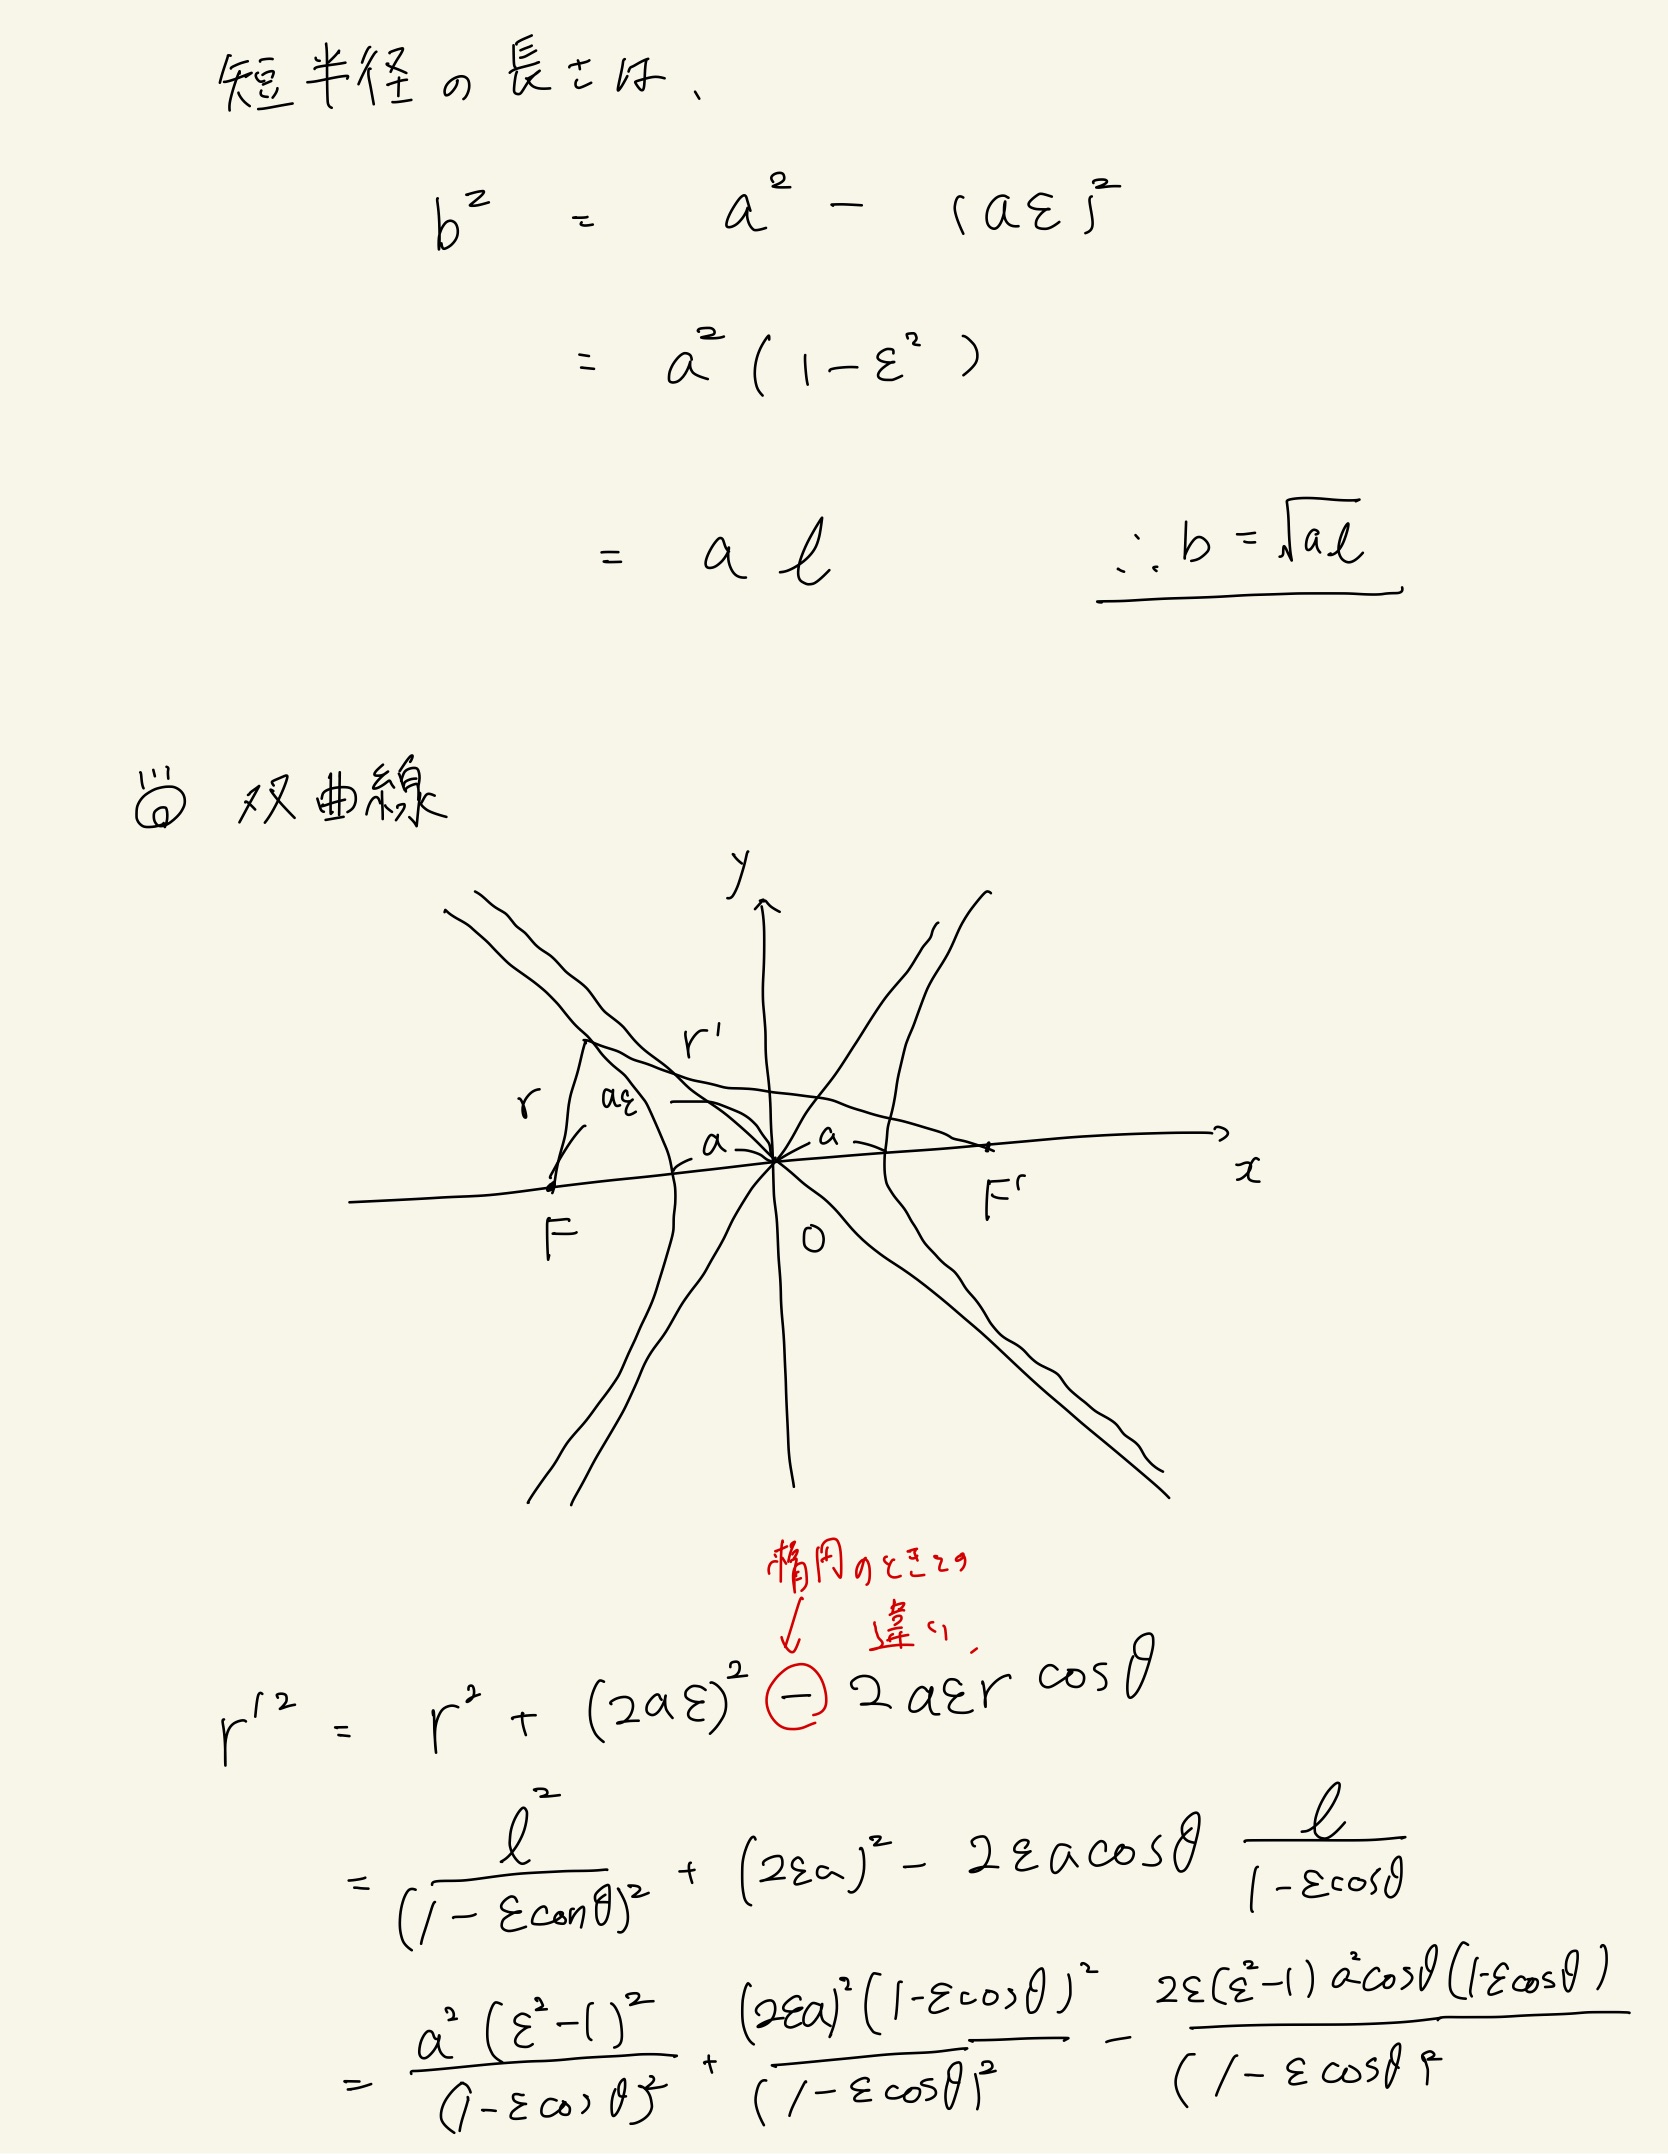 短半径の長さは、
b² = a² - (aε)²
= a² (1-ε²)
= a l ∴ b = √al
双曲線
y
r'
r aε
a a
x
F O F'
楕円のときとの
違い.
r'² = r² + (2aε)² - 2aεr cosθ
= l²/(1-εcosθ)² + (2εa)² - 2εa cosθ l/(1-εcosθ)
= a²(ε²-1)²/(1-εcosθ)² + (2εa)²(1-εcosθ)²/(1-εcosθ)² - 2ε(ε²-1)a²cosθ(1-εcosθ)/(1-εcosθ)²